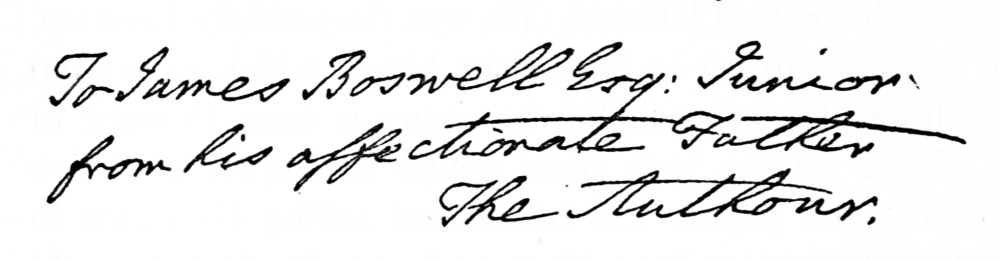 To James Boswell Esq: Junior.
from his affectionate Father
The Authour.